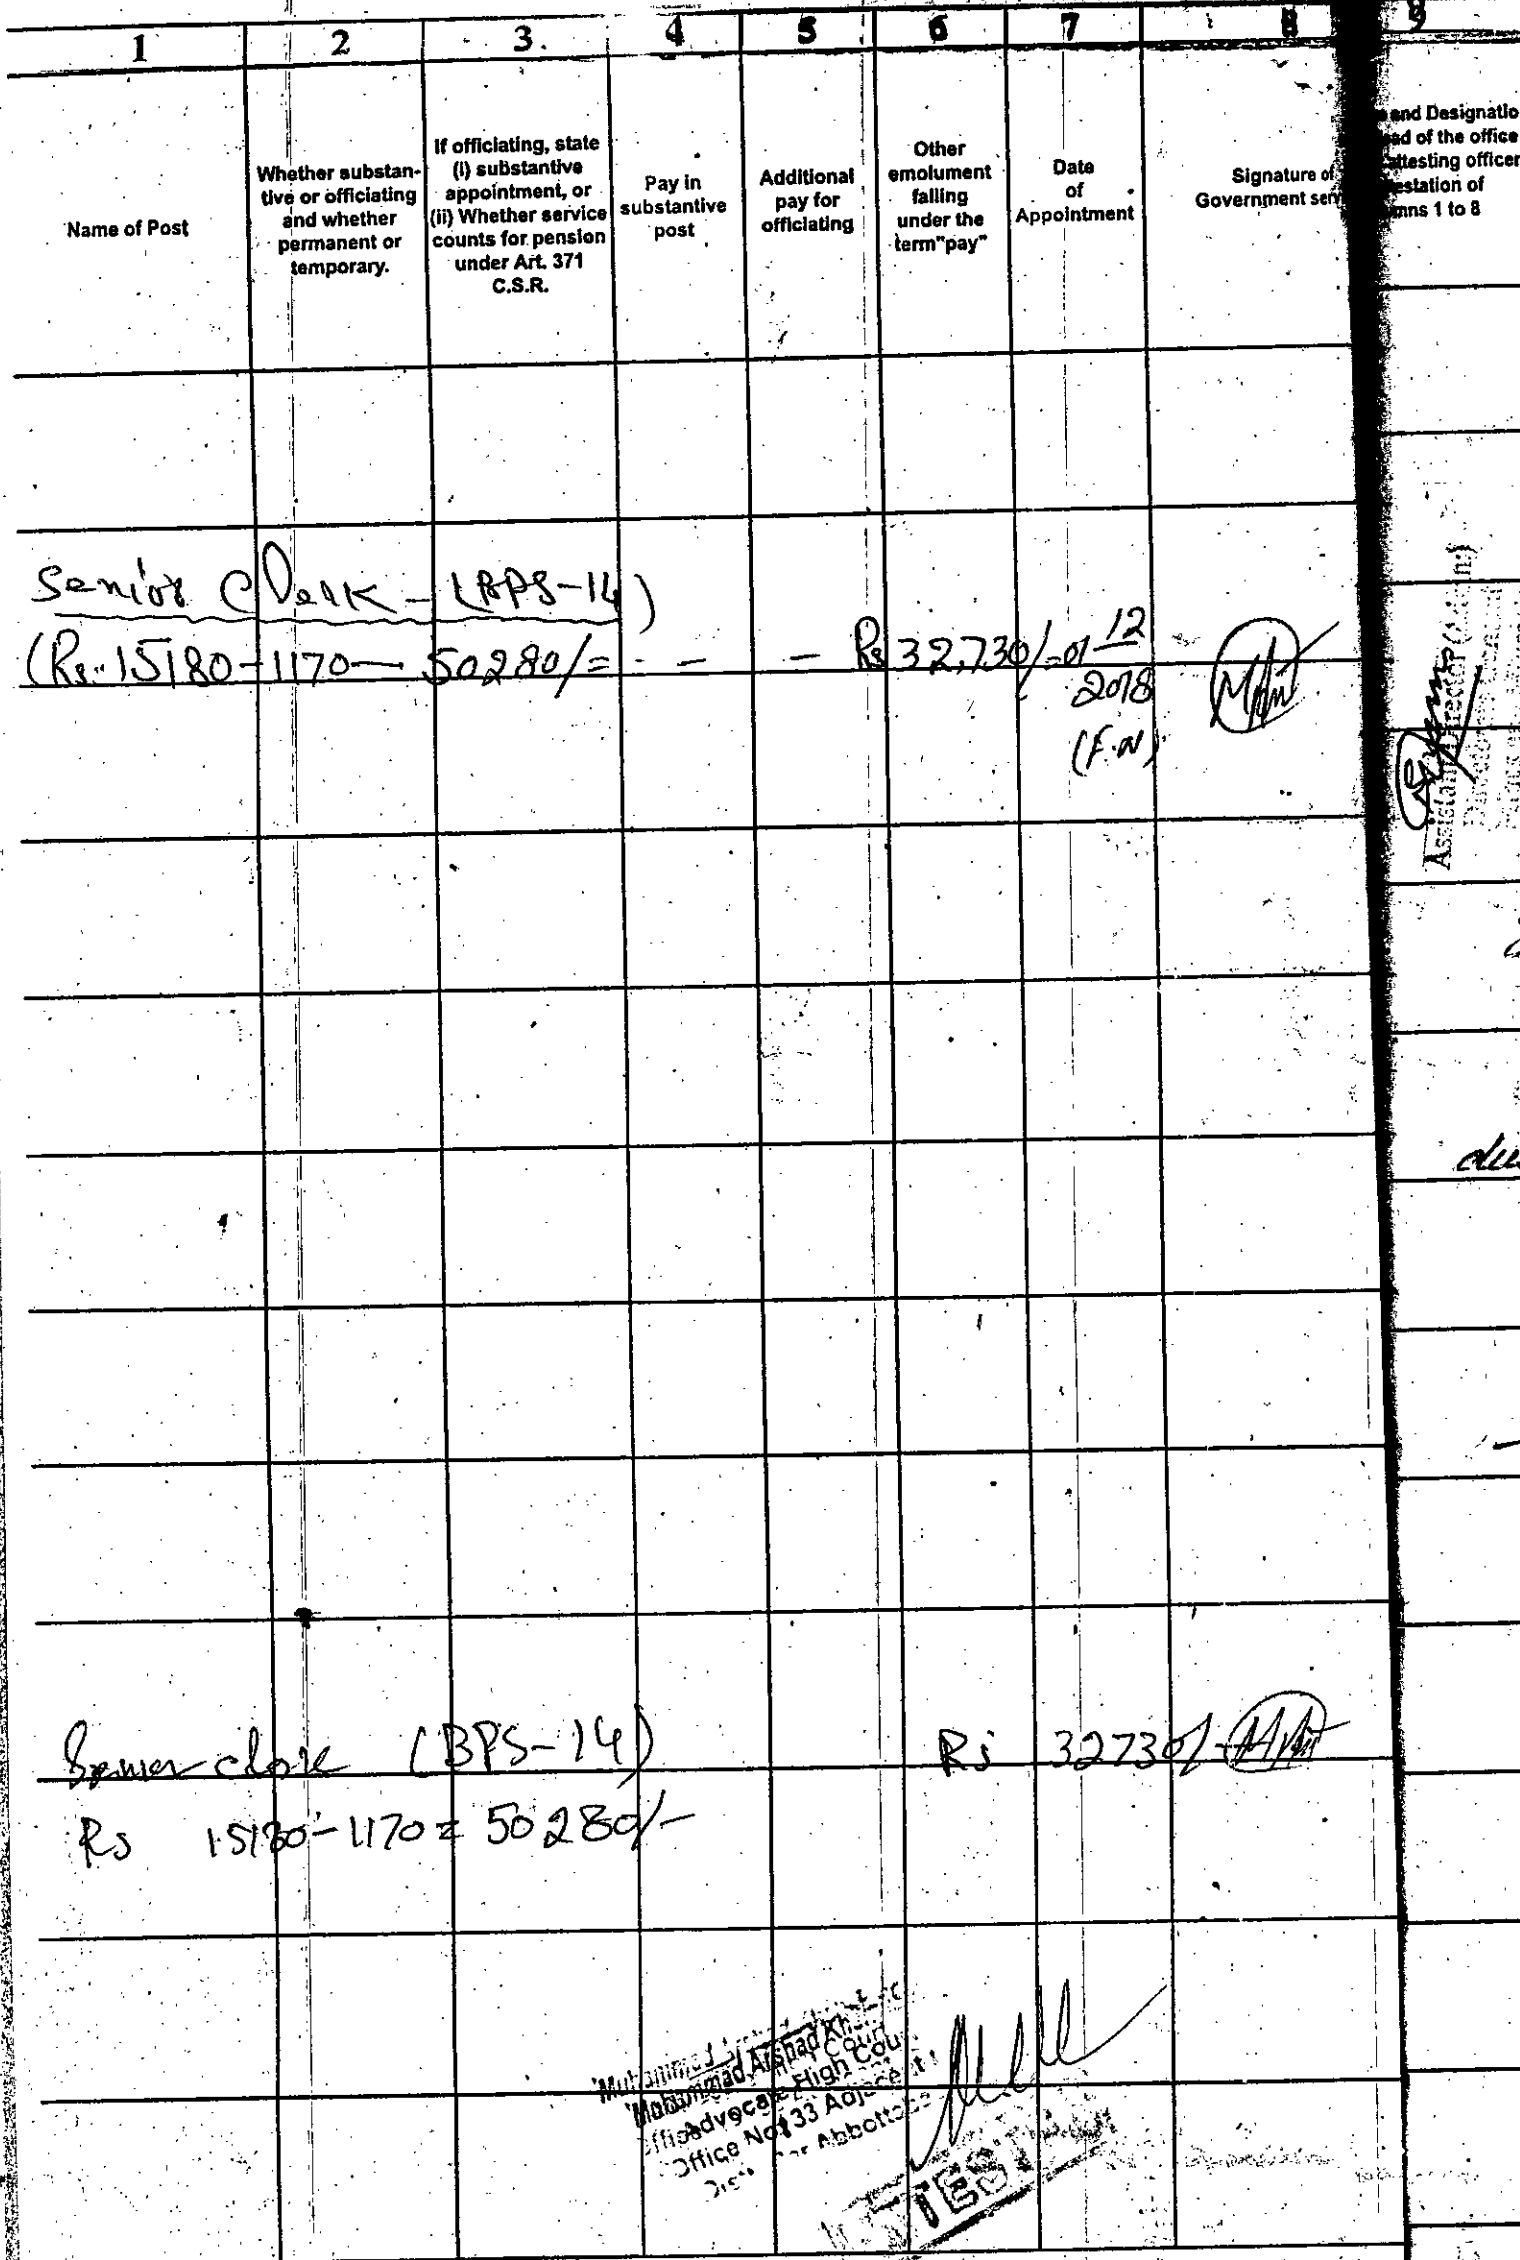 1 2 3. 4 5 6 7 8 9
Name of Post
Whether substan-
tive or officiating
and whether
permanent or
temporary.
If officiating, state
(i) substantive
appointment, or
(ii) Whether service
counts for pension
under Art. 371
C.S.R.
Pay in
substantive
post
Additional
pay for
officiating
Other
emolument
falling
under the
term"pay"
Date
of
Appointment
Signature of
Government ser
and Designatio
ad of the office
attesting officer
estation of
mns 1 to 8
Senior Clerk - (BPS-14)
(Rs. 15180-1170- 50280/= - - - Rs 32,730/- 01 12
2018
(F.N)
Assistant Director (Admn:)
du
(BPS-14) Rs 32730/-
Rs 15180-1170= 50280/-
Muhammad Arshad Kh
Advocate High Cou
Office No 33 Adjacent
Abbotta
ATTEST